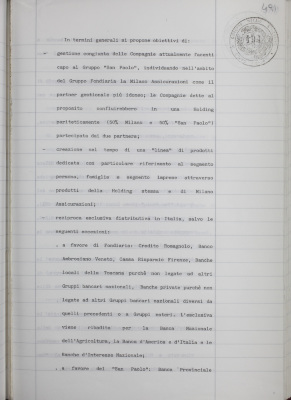 In termini generali si propone obiettivi di:
- gestione congiunta delle Compagnie attualmente facenti
capo al Gruppo "San Paolo", individuando nell'ambito
del Gruppo Fondiaria la Milano Assicurazioni come il
partner gestionale più idoneo; le Compagnie dette al
proposito confluirebbero in una Holding
pariteticamente (50% Milano e 50% "San Paolo")
partecipata dai due partners;
- creazione nel tempo di una "linea" di prodotti
dedicata con particolare riferimento al segmento
persona, famiglia e segmento imprese attraverso
prodotti della Holding stessa e di Milano
Assicurazioni;
- reciproca esclusiva distributiva in Italia, salvo le
seguenti eccezioni:
. a favore di Fondiaria: Credito Romagnolo, Banco
Ambrosiano Veneto, Cassa Risparmio Firenze, Banche
locali della Toscana purchè non legate ad altri
Gruppi bancari nazionali, Banche private purchè non
legate ad altri Gruppo bancari nazionali diversi da
quelli precedenti o a Gruppo esteri. L'esclusiva
viene ribadita per la Banca Nazionale
dell'Agricoltura, la Banca d'America e d'Italia e la
Banca d'Interesse Nazionale;
. a favore del "San Paolo": Banca Provinciale